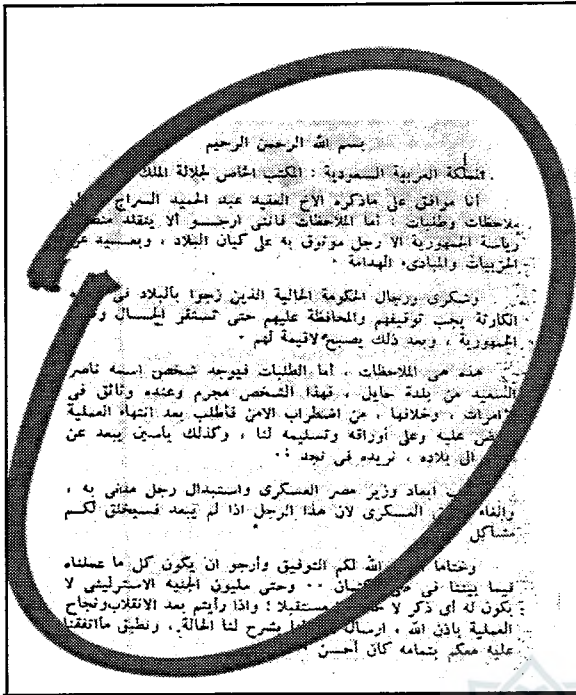 بسم الله الرحمن الرحيم
المملكة العربية السعودية : المكتب الخاص لجلالة الملك
أنا موافق على ماذكره الأخ العقيد عبد الحميد السراج
ملاحظات وطلبات : أما الملاحظات فانني ارجــو ألا يتقلد
رياسة الجمهورية الا رجل موثوق به على كيان البلاد ، وبعــيد عن
الحزبيات والمبادىء الهدامة .
وشكرى ورجال الحكومة الحالية الذين زجوا بالبلاد في
الكارثة يجب توقيفهم والمحافظة عليهم حتى تستقر الحــال
الجمهورية ، وبعد ذلك يصبح لاقيمة لهم .
هذه هي الملاحظات ، أما الطلبات فيوجد شخص اسمه ناصر
السعيد من بلدة حايل ، فهذا الشخص مجرم وعنده وثائق في
، وخلافها ، عن اضطراب الامن فأطلب بعد انتهاء العملية
عليه وعلى أوراقه وتسليمه لنا ، وكذلك ياسين يبعد عن
ال بلاده ، نريده في نجد ..
ابعاد وزير مصر العسكرى واستبدال رجل مدنى به ،
والغاء العسكرى لان هذا الرجل اذا لم يبعد فسيخلق لكــم
مشاكل
وختاما الله لكم التوفيق وأرجو ان يكون كل ما عملناه
فيما بيننا في كتمان .. وحتى مليون الجنيه الاسترلينى لا
يكون له أى ذكر لا مستقبلا ؛ واذا رأيتم بعد الانقلاب ونجاح
العملية باذن الله ، ارسال يشرح لنا الحالة ، ونطبق مااتفقنا
عليه معكم بتمامه كان أحسن